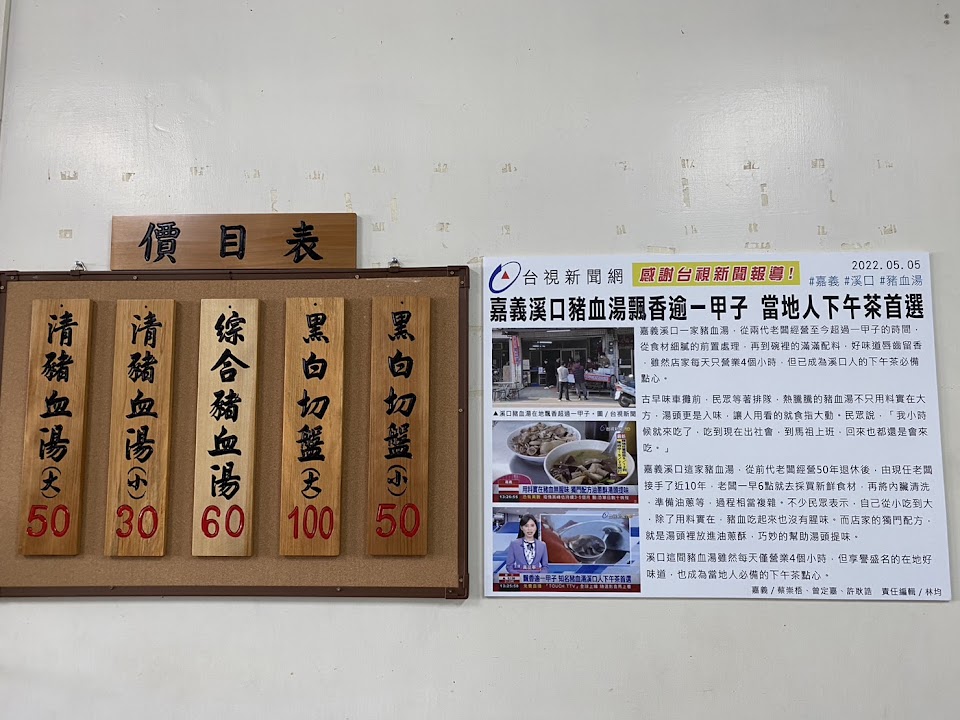 價目表
清豬血湯(大)
50
清豬血湯(小)
30
綜合豬血湯
60
黑白切盤(大)
100
黑白切盤(小)
50
台視新聞網
感謝台視新聞報導!
2022.05.05
#嘉義 #溪口 #豬血湯
嘉義溪口豬血湯飄香逾一甲子 當地人下午茶首選
▲溪口豬血湯在地飄香超過一甲子。圖/台視新聞
用料實在豬血無腥味 獨門配方油蔥酥湯頭提味
13:26:55
飄香逾一甲子 知名豬血湯溪口人下午茶首選
13:25:58
嘉義溪口一家豬血湯,從兩代老闆經營至今超過一甲子的時間,
從食材細膩的前置處理,再到碗裡的滿滿配料,好味道唇齒留香
,雖然店家每天只營業4個小時,但已成為溪口人的下午茶必備
點心。
古早味車攤前,民眾等著排隊,熱騰騰的豬血湯不只用料實在大
方,湯頭更是入味,讓人用看的就食指大動。民眾說,「我小時
候就來吃了,吃到現在出社會,到馬祖上班,回來也都還是會來
吃。」
嘉義溪口這間豬血湯,從前代老闆經營50年退休後,由現任老闆
接手了近10年,老闆一早6點就去採買新鮮食材,再將內臟清洗
、準備油蔥等,過程相當複雜。不少民眾表示,自己從小吃到大
,除了用料實在,豬血吃起來也沒有腥味。而店家的獨門配方,
就是湯頭裡放進油蔥酥,巧妙的幫助湯頭提味。
溪口這間豬血湯雖然每天僅營業4個小時,但享譽盛名的在地好
味道,也成為當地人必備的下午茶點心。
嘉義/蔡崇梧、曾定嘉、許耿誥 責任編輯/林均